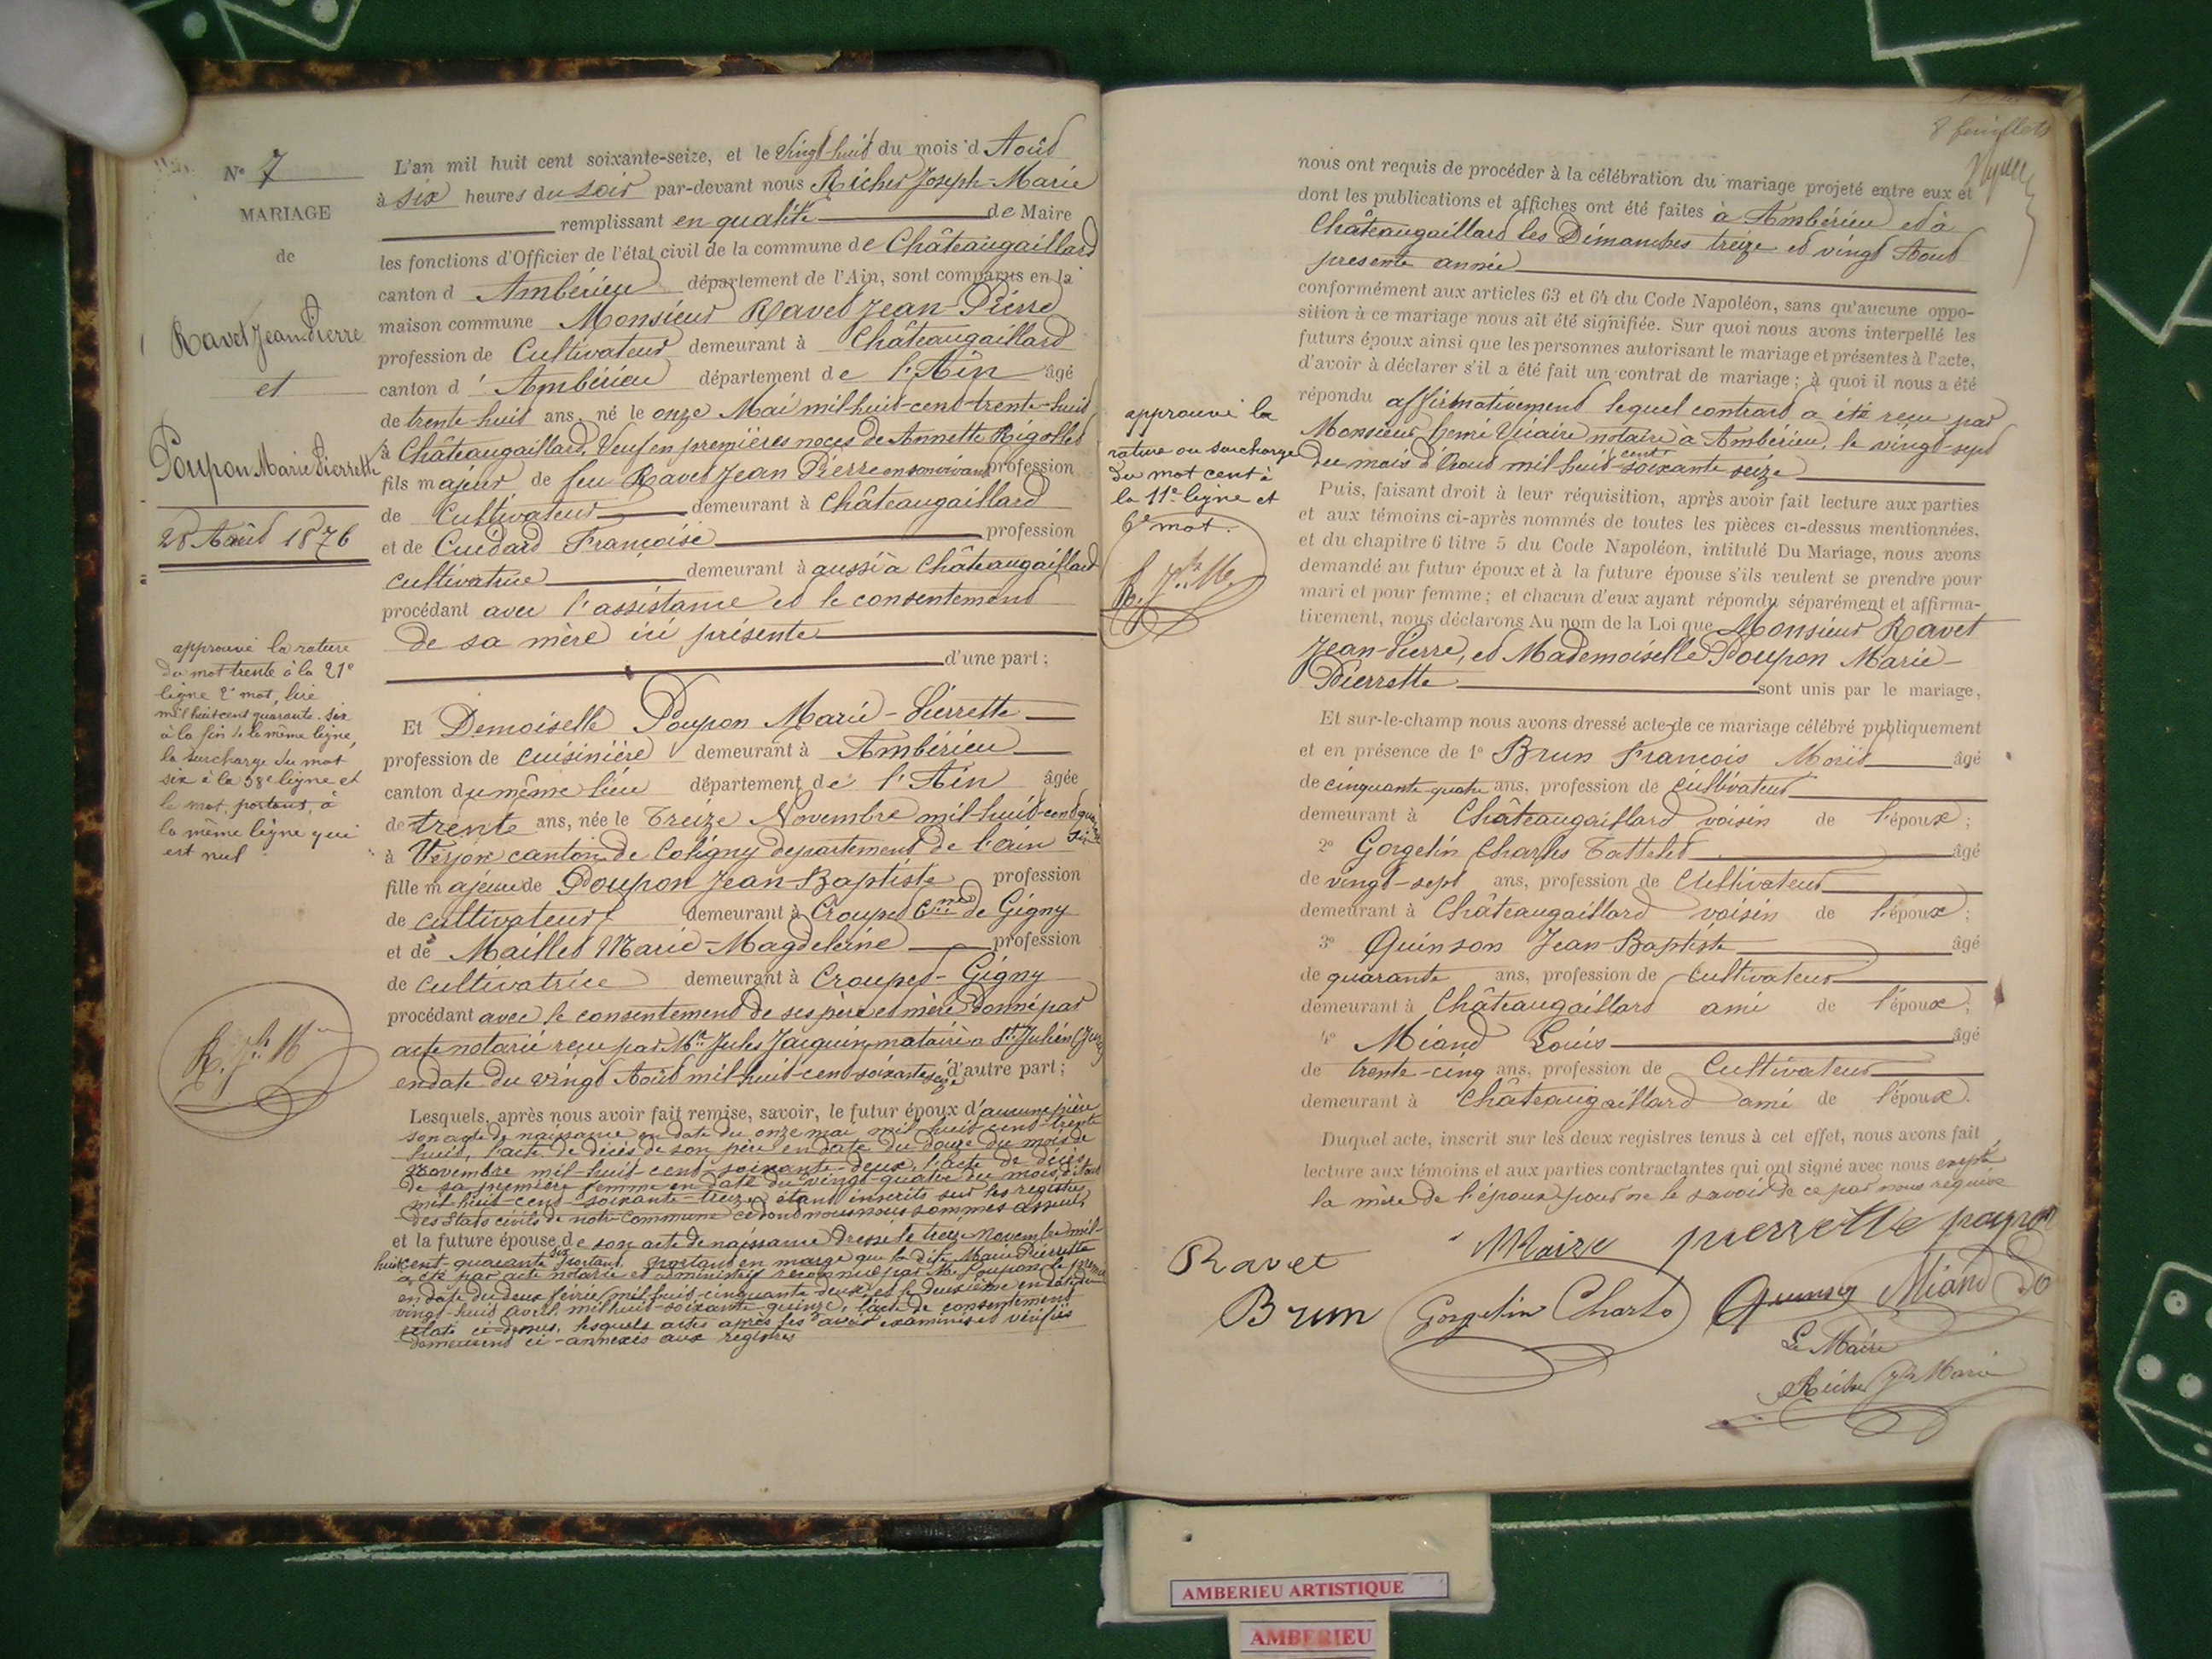 N° 7
MARIAGE
de
Ravet Jean-Pierre
et
Poupon Marie Pierrette
28 Août 1876
approuvé la rature
du mot trente à la 21e
ligne 2e mot, lire
mil huit cent quarante-six
à la fin de la même ligne,
la surcharge du mot
six à la 38e ligne et
le mot portant, à
la même ligne qui
est nul.
R. Jh M
L'an mil huit cent soixante-seize, et le Vingt-huit du mois d'Août
à six heures du soir par-devant nous Richer Joseph-Marie
remplissant en qualité de Maire
les fonctions d'Officier de l'état civil de la commune de Châteaugaillard
canton d Ambérieu département de l'Ain, sont comparus en la
maison commune Monsieur Ravet Jean-Pierre
profession de Cultivateur demeurant à Châteaugaillard
canton d' Ambérieu département de l'Ain âgé
de trente-huit ans, né le onze Mai mil-huit-cent-trente-huit,
à Châteaugaillard, Veuf en premières noces de Annette Rigollet
fils majeur de feu Ravet Jean Pierre en son vivant profession
de Cultivateur demeurant à Châteaugaillard
et de Cuidard Françoise profession
cultivatrice demeurant à aussi à Châteaugaillard
procédant avec l'assistance et le consentement
de sa mère ici présente
d'une part;
Et Demoiselle Poupon Marie-Pierrette
profession de cuisinière demeurant à Ambérieu
canton du même lieu département de l'Ain âgée
de trente ans, née le Treize Novembre mil-huit-cent quarante
à Verjon canton de Coligny departement de l'ain six
fille majeure de Poupon Jean-Baptiste profession
de cultivateur demeurant à Croupet Cne de Gigny
et de Maillet Marie-Magdeleine profession
de cultivatrice demeurant à Croupet-Gigny
procédant avec le consentement de ses père et mère donné par
acte notarié reçu par Me Jules Jacquin, notaire à St Julien (Jura)
en date du vingt Août mil-huit-cent-soixante seize d'autre part;
Lesquels, après nous avoir fait remise, savoir, le futur époux d'aucune pièce
son acte de naissance en date du onze mai mil huit cent-trente
huit, l'acte de décès de son père en date du douze du mois de
Novembre mil-huit-cent-soixante-deux, l'acte de décès
de sa première femme en date du vingt-quatre du mois d'Août
mil-huit-cent-soixante-treize étant inscrits sur les registres
des Etats civils de notre commune ce dont nous nous sommes assuré,
et la future épouse de son acte de naissance dressé le treize Novembre mil-
huit cent-quarante six portant, portant en marge que la dite Marie Pierrette
a été par acte notarié et administratif reconnue par Mr Poupon, le premier
en date du deux février mil-huit-cinquante-deux, et le deuxième en date du
vingt-huit avril mil huit-soixante-quinze, l'acte de consentement
relaté ci-dessus, lesquels actes après les avoir examinés et vérifiés
demeurent ci-annexés aux registres
8 feuillets
nous ont requis de procéder à la célébration du mariage projeté entre eux et
dont les publications et affiches ont été faites à Ambérieu et à
Châteaugaillard les Dimanches treize et vingt Août
presente année
conformément aux articles 63 et 64 du Code Napoléon, sans qu'aucune oppo-
sition à ce mariage nous ait été signifiée. Sur quoi nous avons interpellé les
futurs époux ainsi que les personnes autorisant le mariage et présentes à l'acte,
d'avoir à déclarer s'il a été fait un contrat de mariage; à quoi il nous a été
répondu affirmativement lequel contrat a été reçu par
Monsieur henri notaire à Ambérieu, le vingt-sept
du mois d'Août mil huit-cent soixante seize
approuvé la
rature ou surcharge
du mot cent à
la 11e ligne et
6e mot.
R. Jh M.
Puis, faisant droit à leur réquisition, après avoir fait lecture aux parties
et aux témoins ci-après nommés de toutes les pièces ci-dessus mentionnées,
et du chapitre 6 titre 5 du Code Napoléon, intitulé Du Mariage, nous avons
demandé au futur époux et à la future épouse s'ils veulent se prendre pour
mari et pour femme; et chacun d'eux ayant répondu séparément et affirma-
tivement, nous déclarons Au nom de la Loi que Monsieur Ravet
Jean-Pierre, et Mademoiselle Poupon Marie-
Pierrette sont unis par le mariage,
Et sur-le-champ nous avons dressé acte de ce mariage célébré publiquement
et en présence de 1° Brun François âgé
de cinquante-quatre ans, profession de cultivateur
demeurant à Châteaugaillard voisin de l'époux;
2° Gorgelin Charles âgé
de vingt-sept ans, profession de Cultivateur
demeurant à Châteaugaillard voisin de l'époux;
3° Quinson Jean-Baptiste âgé
de quarante ans, profession de Cultivateur
demeurant à Châteaugaillard ami de l'époux;
4° Miand Louis âgé
de trente-cinq ans, profession de Cultivateur
demeurant à Châteaugaillard ami de l'époux.
Duquel acte, inscrit sur les deux registres tenus à cet effet, nous avons fait
lecture aux témoins et aux parties contractantes qui ont signé avec nous excepté
la mère de l'époux pour ne le savoir de ce par nous requise
Ravet Marie pierrette
Brun Gorgelin Charles Quinson Miand
Le Maire
Richer Jh Marie
AMBERIEU ARTISTIQUE
AMBERIEU